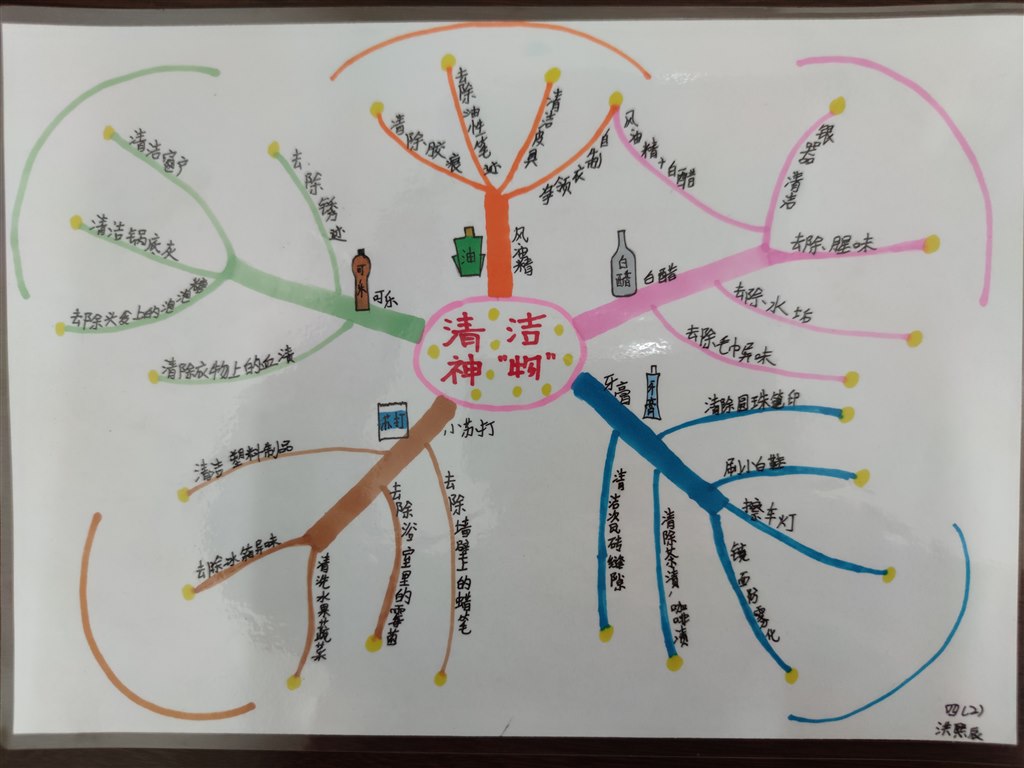 清洁
神“物”
风油精
油
清除胶痕
去除油性笔迹
清洁皮具
自制衣领净
风油精+白醋
白醋
白醋
银器清洁
去除腥味
去除水垢
去除毛巾异味
牙膏
牙膏
清除圆珠笔印
刷小白鞋
擦车灯
镜面防雾化
清除茶渍,咖啡渍
清洁瓷砖缝隙
小苏打
苏打
去除墙壁上的蜡笔
去除浴室里的霉菌
清洗水果蔬菜
去除冰箱异味
清洁塑料制品
可乐
可乐
去除锈迹
清洁窗户
清洁锅底灰
清除衣物上的血渍
四(2)